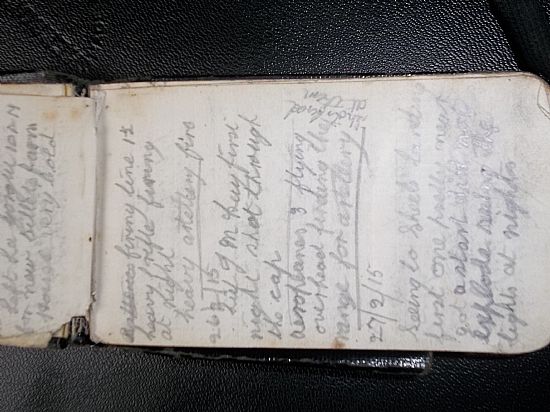 left la farm 10 AM
for new billet farm
House very cold
distance firing line 1½
heavy rifle firing
at night
heavy artelery fire
26/2/15
Left 9 PM heavy fire
night shot through
the cap
Aeroplanes 3 flying
overhead finding the
range for artelery
at them
27/2/15
Seeing to Shells landing
first one pretty near
got a start
explode seeing the
lights at night